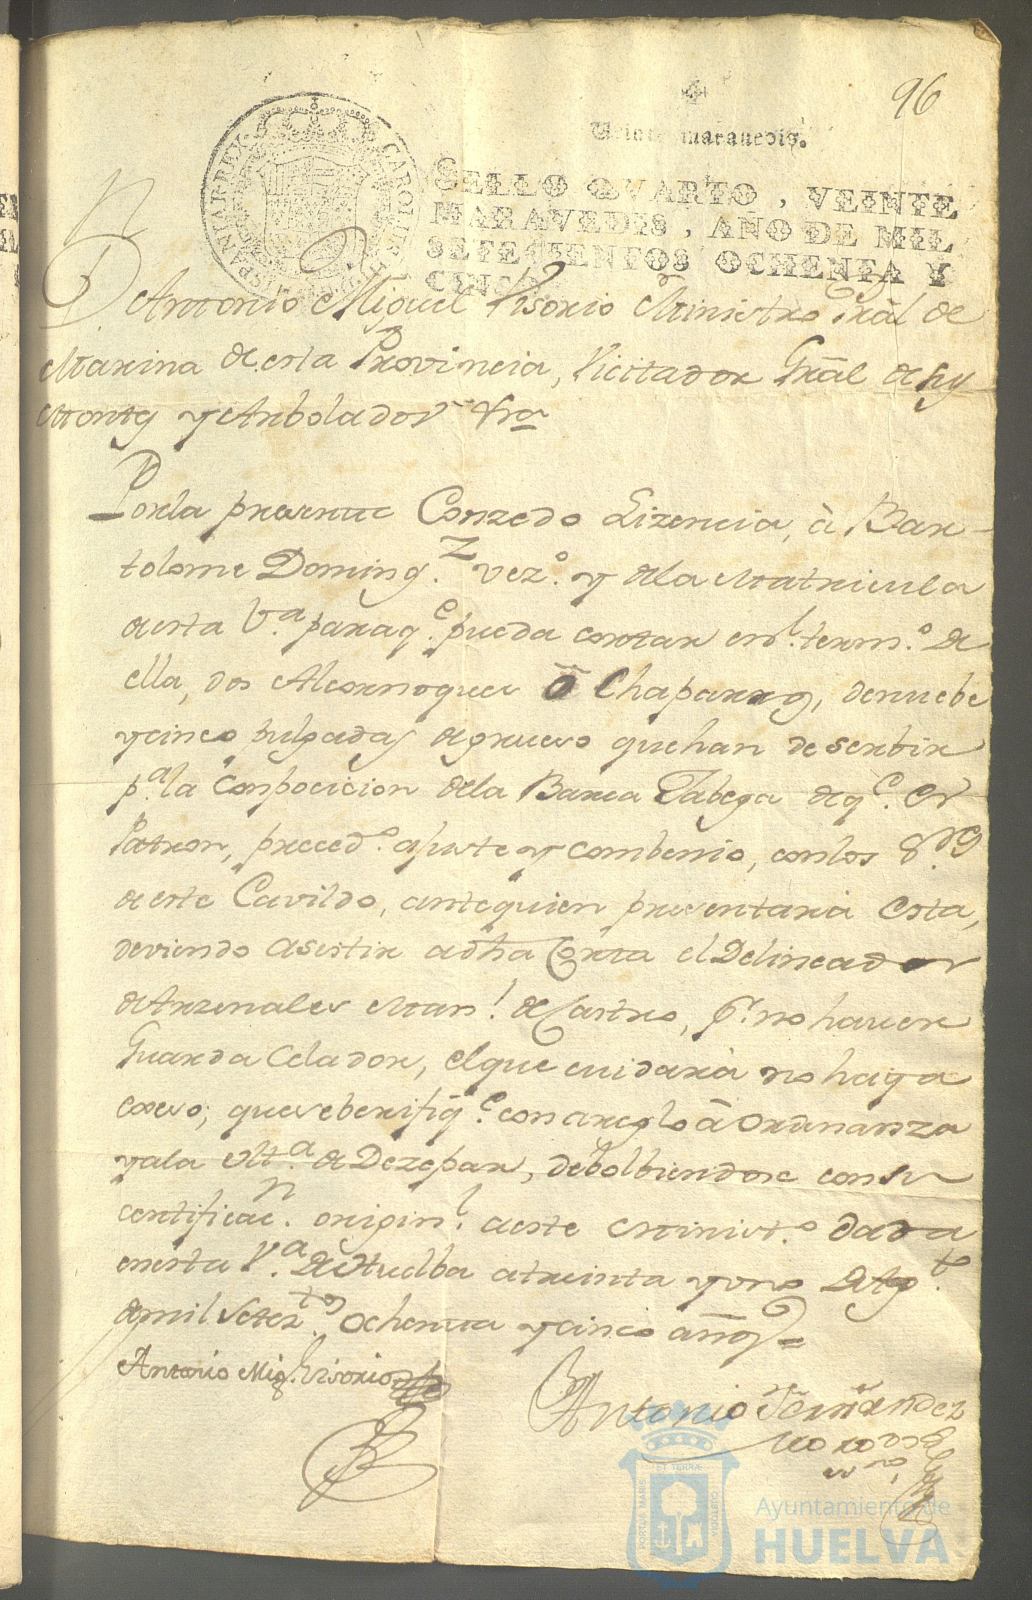 96
Veinte maravedis.
SELLO QVARTO, VEINTE
MARAVEDIS, AÑO DE MIL
SETECIENTOS OCHENTA Y
CINCO.
HISPANIAR REX CAROL
Dn Antonio Miguel Visorio Ministro Prâl de
Marina de esta Provincia, Vicitador Grâl de sus
Montes y Arbolados &ra
Por la presente Conzedo Lizencia, à Bar-
tolome Doming.z vez.o y de la Matricula
de esta V.a para q.e pueda cortar en el term.o de
ella, dos Alcornoques ò Chaparros, de nuebe
y cinco pulgadas de grueso que han de serbir
p.a la Conpocicion de la Barca Jabega de q.e es
Patron, preced.o ajuste y combenio, con los S.res
de este Cavildo, ante quien presentarà esta,
deviendo asistir a dha Corta el Delineador
de Arzenales Man.l de Castro, p.r no haver
Guarda Celador, el que cuidarà no haga
exeso; que se berifiq.e con arreglo à Ordenanza
y a la Mt.a de Dezepar, debolbiendose con su
certificac.n origin.l a este Minist.o dada
en esta V.a de Huelba a treinta y uno de Ag.to
de mil setez.tos ochenta y cinco años=
Antonio Mig. Visorio
Antonio Fernandez
Ayuntamiento de
HUELVA
PORTUS MARIS
ET TERRÆ
CUSTODIA